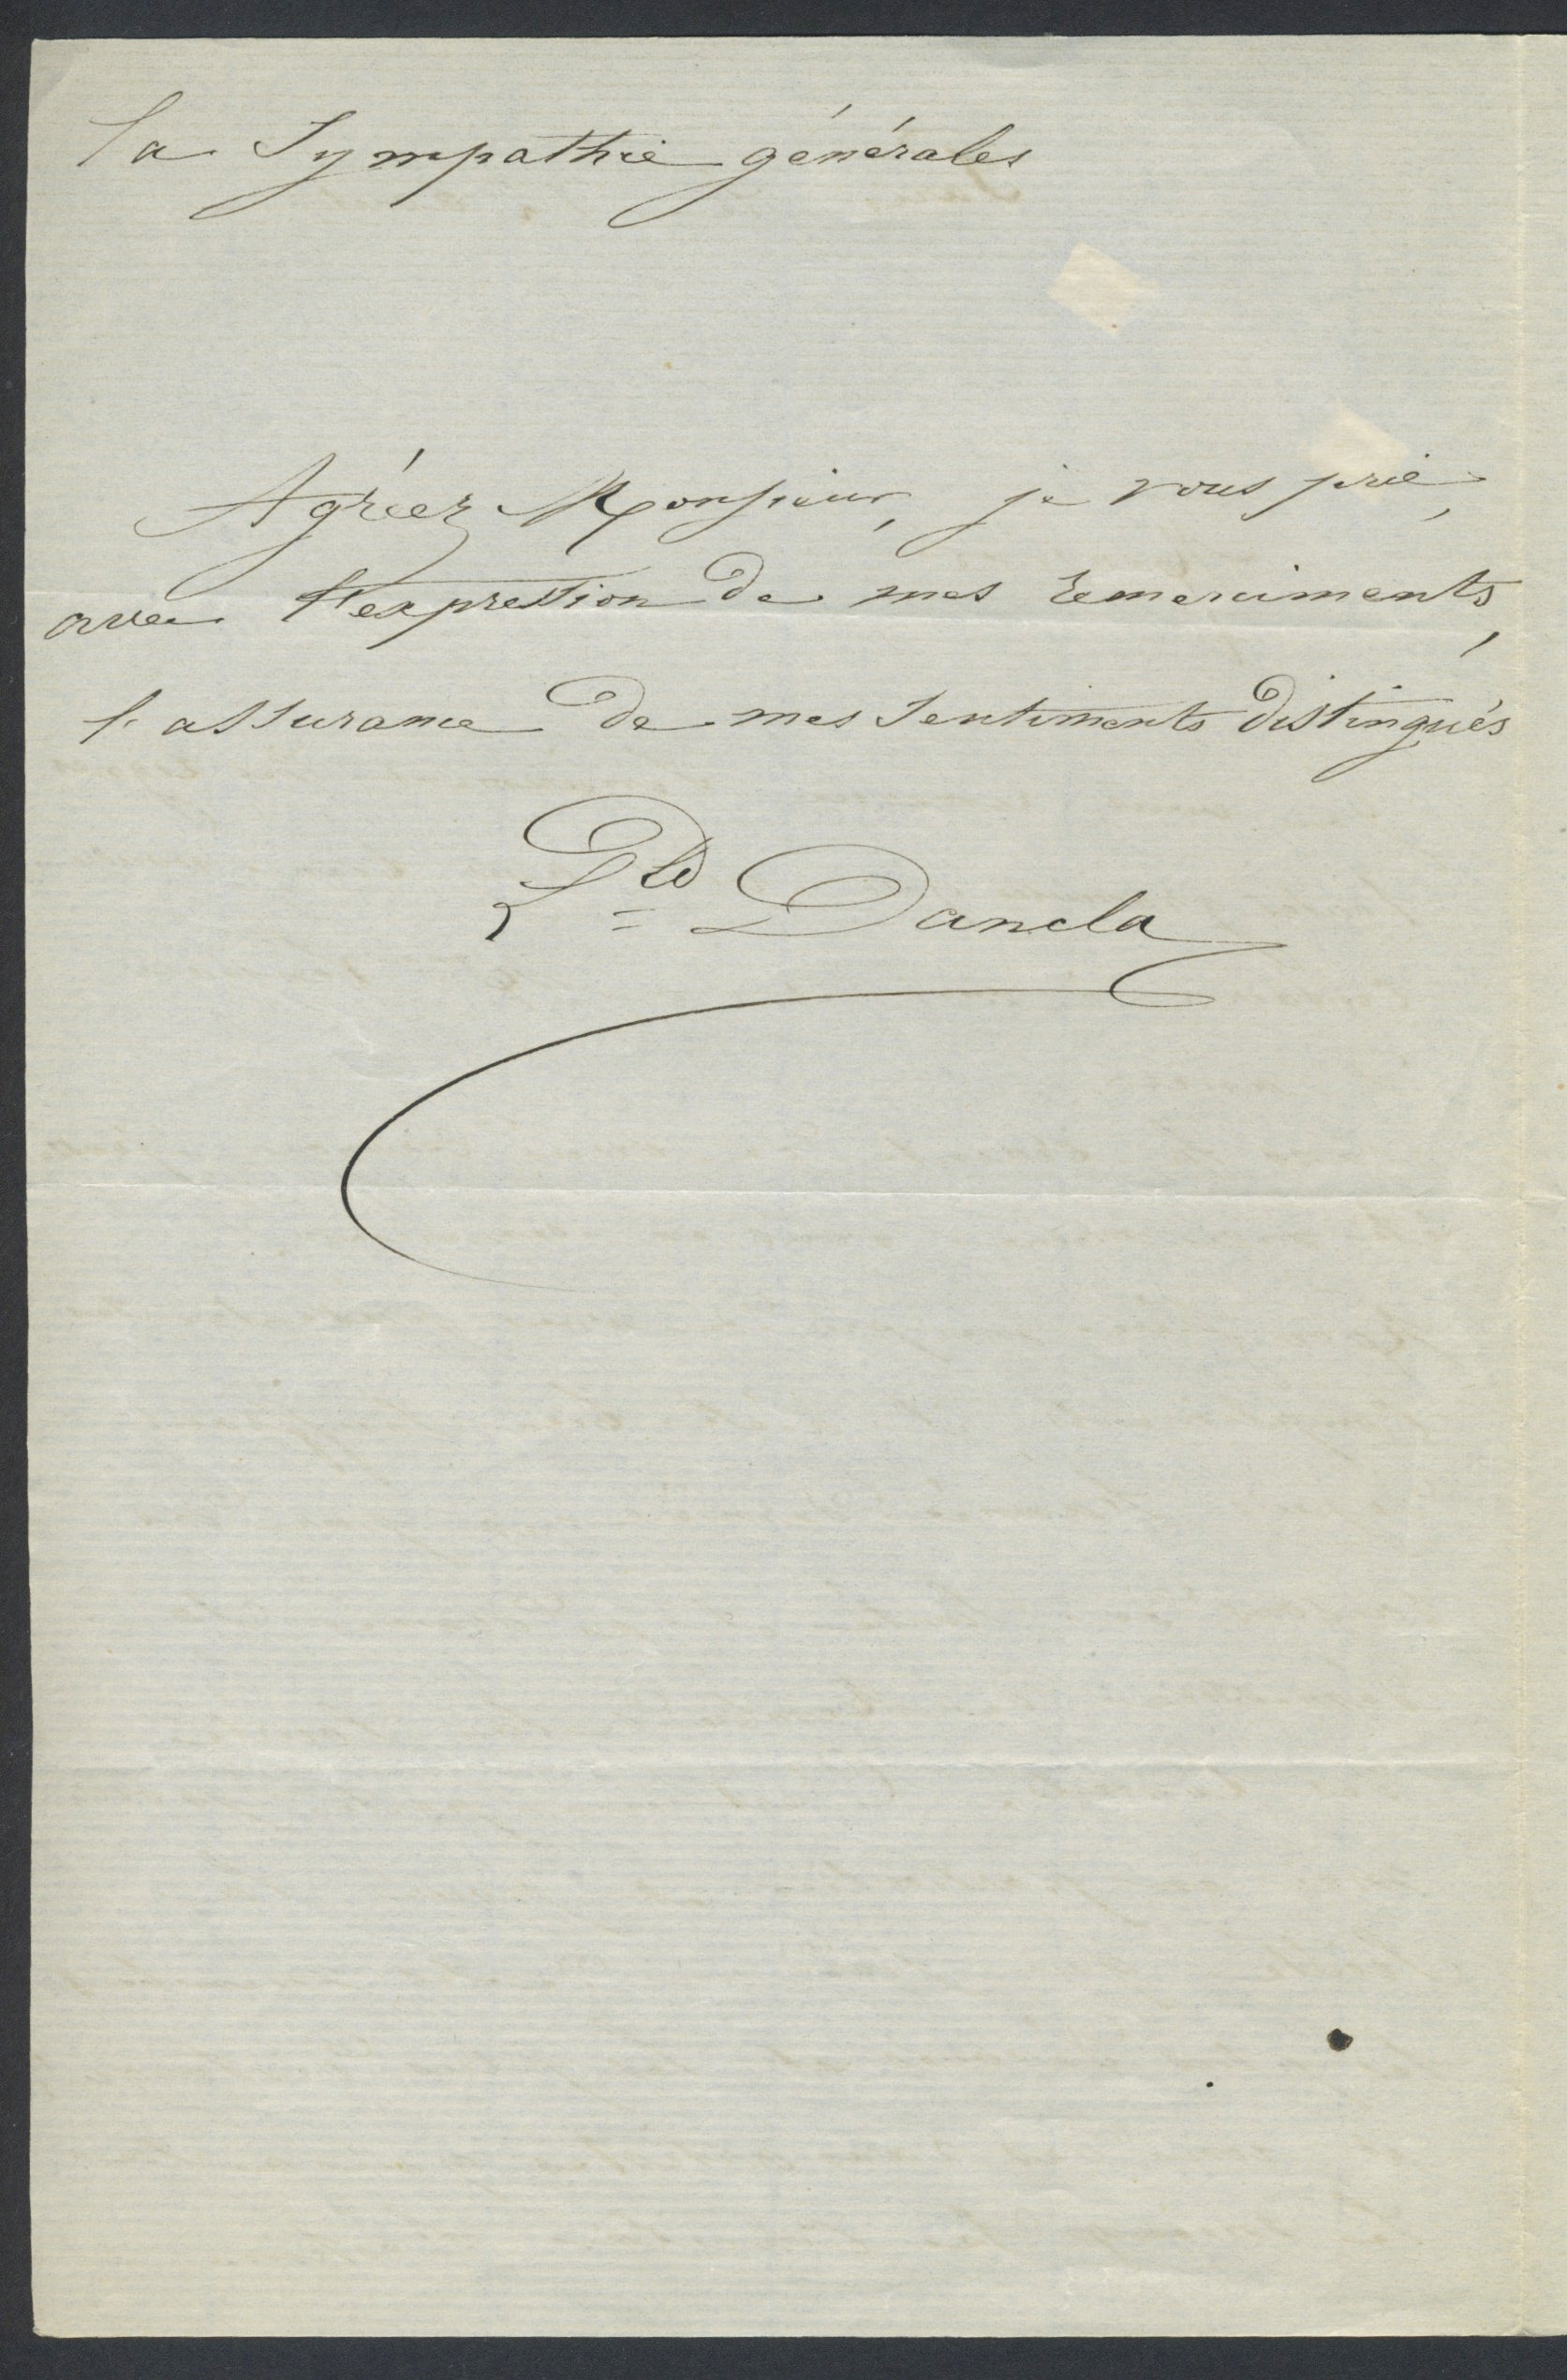 la Sympathie générales
Agréez Monsieur, je vous prie,
avec l'expression de mes remerciments,
l'assurance de mes Sentiments distingués
Ld Dancla